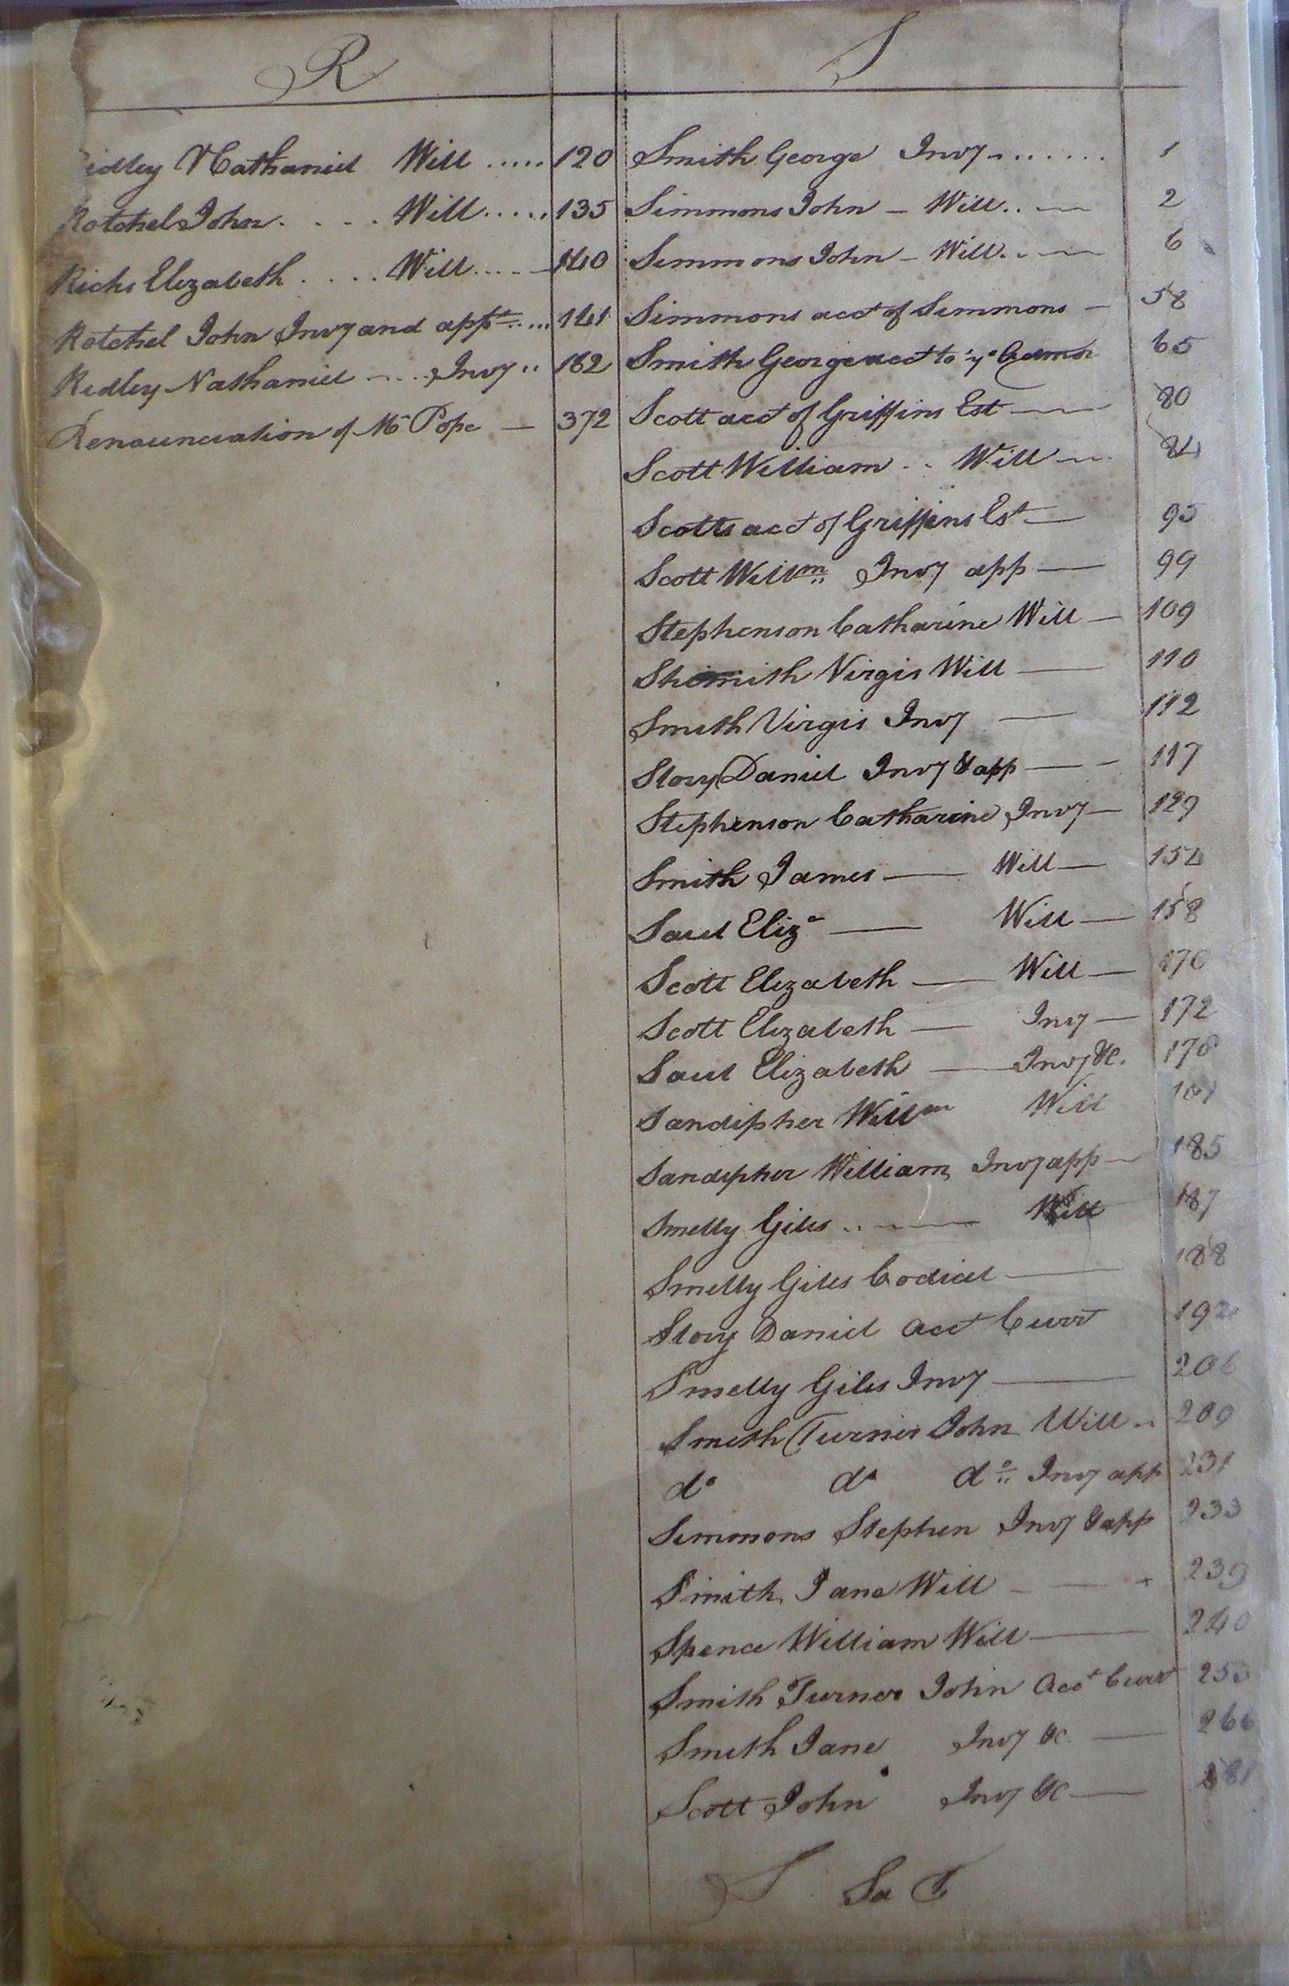 R
idley Nathaniel Will ..... 120
Rotchel John .... Will ..... 135
Ricks Elizabeth .... Will ..... 140
Rotchel John Invy and appt ..... 141
Ridley Nathaniel .... Invy .. 182
Renounciation of Mrs Pope — 372
S
Smith George Invy ....... 1
Simmons John — Will .. — 2
Simmons John — Will .. — 6
Simmons acct of Simmons — 58
Smith George acct to ye Admor 65
Scott acct of Griffins Est — 80
Scott William .. Will — 84
Scotts acct of Griffins Est — 95
Scott Willm Invy app — 99
Stephenson Catharine Will — 109
Smith Virgis Will — 110
Smith Virgis Invy — 112
Story Daniel Invy & app — 117
Stephenson Catharine Invy — 129
Smith James — Will — 154
Saul Eliza — Will — 158
Scott Elizabeth — Will — 170
Scott Elizabeth — Invy — 172
Saul Elizabeth — Invy &c. 176
Sandipher Willm Will
Sandipher William Invy app — 185
Smelly Giles .. — Will 187
Smelly Giles Codicil — 188
Story Daniel acct Currt 192
Smelly Giles Invy — 206
Smith Turner John Will .. 209
do do do Invy app 231
Simmons Stephen Invy & app 233
Smith Jane Will — 239
Spence William Will — 240
Smith Turner John Acct Currt 253
Smith Jane Invy &c — 266
Scott John Invy &c —
S Sa T